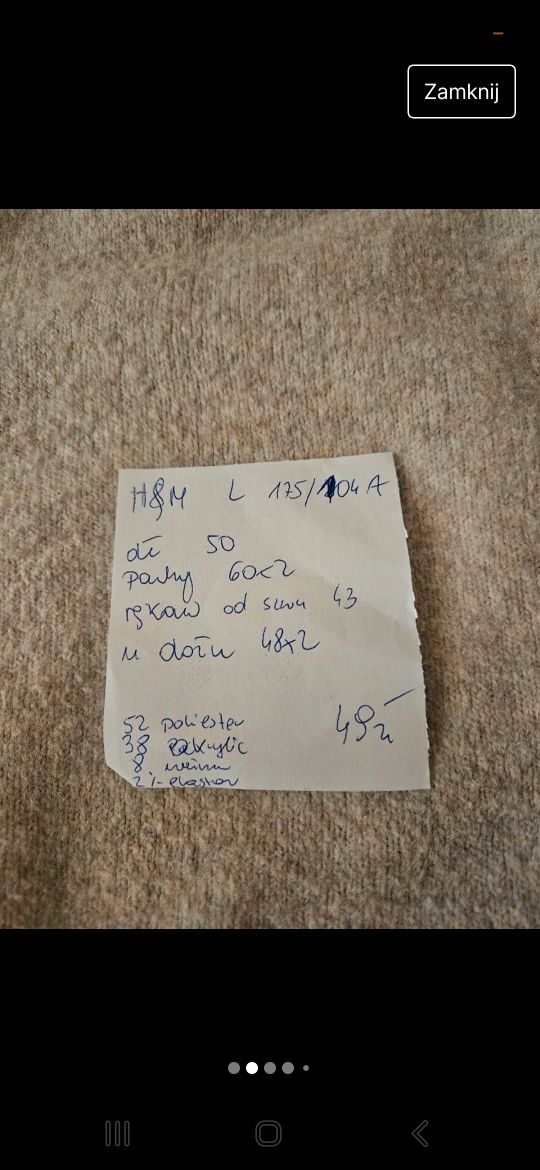 Zamknij
H&M L 175/104 A
dł 50
Pachy 60x2
rękaw od szwu 43
u dołu 48x2
52 poliester
38 akrylic
8 wełna
2 % elastan
49 zł